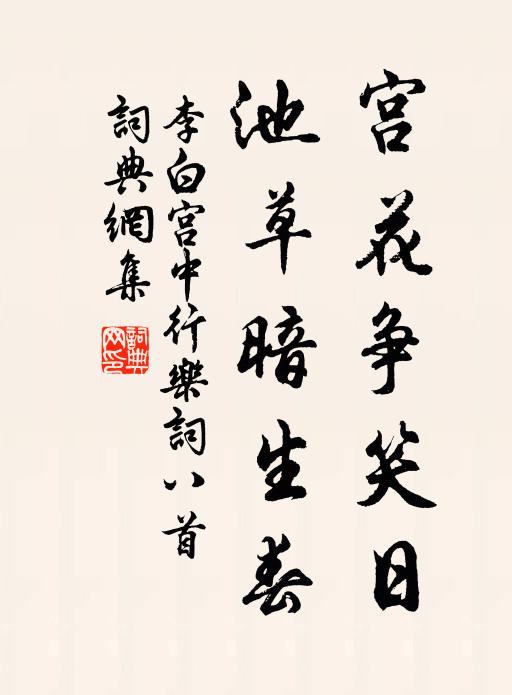 宫花争笑日
池草暗生春
李白宫中行樂詞八首
詞典網集
詞典网印